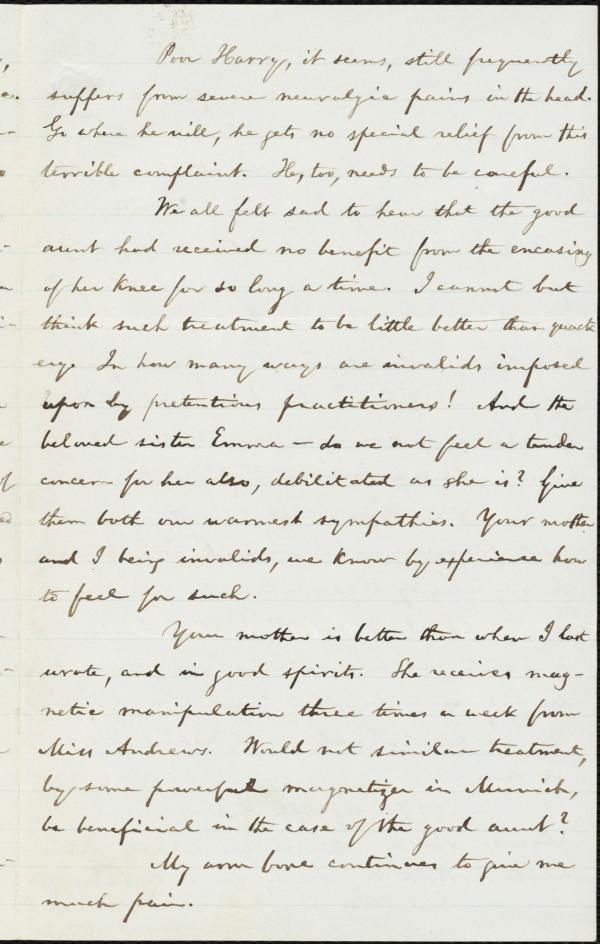 Poor Harry, it seems, still frequently
suffers from severe neuralgic pains in the head.
Go where he will, he gets no special relief from this
terrible complaint. He, too, needs to be careful.
We all felt sad to hear that the good
aunt had received no benefit from the encasing
of her knee for so long a time. I cannot but
think such treatment to be little better than quack
ery. In how many ways are invalids imposed
upon by pretentious practitioners! And the
beloved sister Emma — do we not feel a tender
concern for her also, debilitated as she is? Give
them both our warmest sympathies. Your mother
and I being invalids, we know by experience how
to feel for such.
Your mother is better than when I last
wrote, and in good spirits. She receives mag-
netic manipulation three times a week from
Miss Andrews. Would not similar treatment,
by some powerful magnetizer in Munich,
be beneficial in the case of the good aunt?
My arm bone continues to give me
much pain.